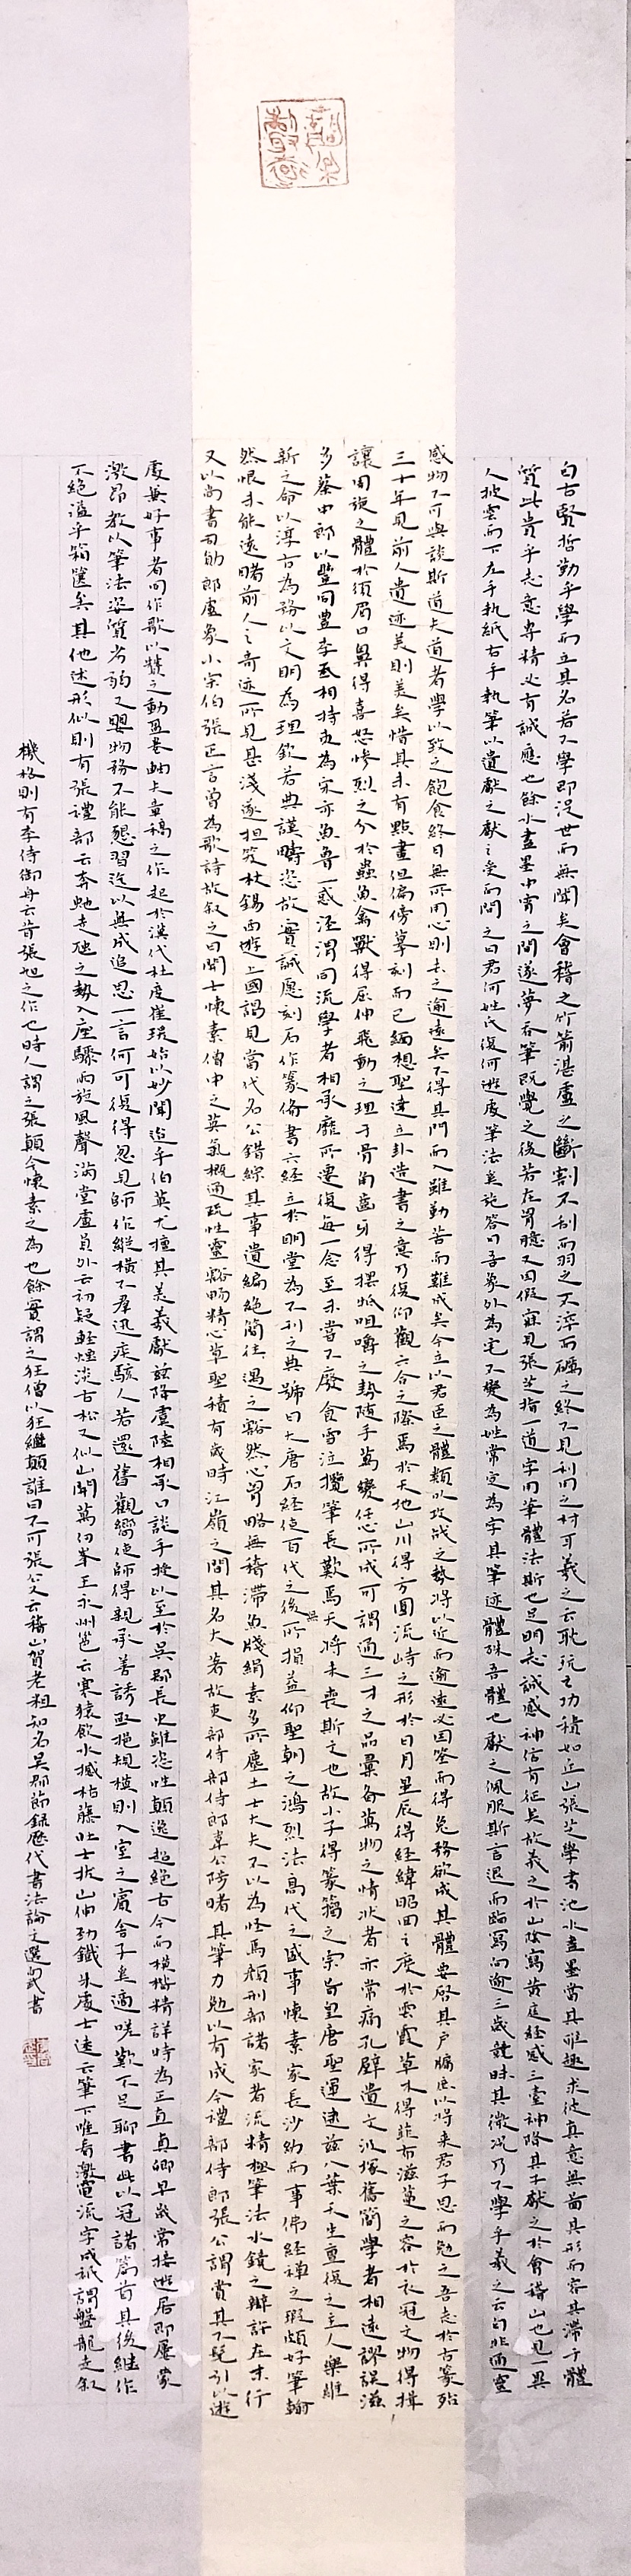 自古賢哲勤乎學而立其名若不學即没世而無聞矣會稽之竹箭湛盧之斷割不刮而羽之不淬而礪之終不見利用之材可羲之云耽玩之功積如丘山張芝學書池水盡墨當其雅趣求彼真意無面其形而容其滯于體
質此貴乎志意專精必有誠應也餘水盡墨中宵之間遂夢吞筆既覺之後若在胃臆又因假寐見張芝指一道字用筆體法斯也足明志誠感神信有征矣故羲之於山陰寫黄庭經感三臺神降其子獻之於會稽山也見一異
人披雲而下左手執紙右手執筆以遺獻之獻之受而問之曰君何姓氏復何遊處筆法奚施答曰吾象外為宅不變為姓常定為字其筆迹體殊吾體也獻之佩服斯言退而臨寫向逾三歲竟昧其微况乃不學乎羲之云自非通靈
感物不可與談斯道夫道者學以致之飽食終日無所用心則去之逾遠矣不得其門而入雖勤苦而難成矣今立以君臣之體類以攻戰之勢將以近而逾遠必因筌而得兔務欲成其體要啓其户牖庶以將來君子思而勉之吾志於古篆殆
三十年見前人遺迹美則美矣惜其未有點畫但偏傍摹刻而已緬想聖達立卦造書之意乃復仰觀六合之際焉於天地山川得方圓流峙之形於日月星辰得經緯昭回之度於雲霞草木得菲布滋蔓之容於衣冠文物得揖
讓周旋之體於須眉口鼻得喜怒慘烈之分於蟲魚禽獸得屈伸飛動之理于骨角齒牙得擺抵咀嚼之勢随手萬變任心所成可謂通三才之品彙備萬物之情狀者亦常痛孔壁遺文汲塚舊簡學者相遠謬誤滋
多蔡中郎以豐同豊李丞相持束為宋亦魚魯一惑涇渭同流學者相承靡所遷復每一念至未嘗不廢食雪泣攬筆長歎焉天將未喪斯文也故小子得篆籀之宗旨皇唐聖運逮兹八葉天生重復之主人樂維
新之命以淳古為務以文明為理欽若典謨疇咨故實誠愿刻石作篆備書六經立於明堂為不刊之典號曰大唐石經使百代之後無所損益仰聖朝之鴻烈法高代之盛事懷素家長沙幼而事佛經禪之暇頗好筆翰
然恨未能遠睹前人之奇迹所見甚淺遂担笈杖錫西遊上國謁見當代名公錯綜其事遺編絶簡往遇之豁然心胃略無稽滯魚牋絹素多所塵土士大夫不以為怪焉顔刑部諸家者流精極筆法水鏡之辯許在末行
又以尚書司勛郎盧象小宗伯張正言曾為歌詩故叙之曰開士懷素僧中之英氣概通疏性靈豁暢精心草聖積有歲時江嶺之間其名大著故吏部侍部侍郎韋公陟睹其筆力勉以有成今禮部侍郎張公謂賞其不羈引以遊
處兼好事者同作歌以贊之動盈卷軸夫草稿之作起於漢代杜度崔瑗始以妙聞迨乎伯英尤擅其美羲獻兹降虞陸相承口訣手授以至於吳郡長史雖恣性顛逸超絶古今而模楷精詳特為正真真卿早歲常接遊居即屢蒙
激昂教以筆法姿質劣弱又嬰物務不能懇習迄以無成追思一言何可復得忽見師作縱橫不羣迅疾駭人若還舊觀嚮使師得親承善誘亟挹規模則入室之賓舍子奚適嗟歎不足聊書此以冠諸篇首其後繼作
不絶溢乎箱篋矣其他述形似則有張禮部云奔虵走虺之勢入座驟雨旋風聲滿堂盧員外云初疑輕煙淡古松又似山開萬仞峯王永州邕云寒猿飲水撼枯藤壯士拔山伸勁鐵朱處士遠云筆下唯看激電流字成祇謂盤龍走叙
機格則有李侍御舟云昔張旭之作也時人謂之張顛今懷素之為也餘實謂之狂僧以狂繼顛誰曰不可張公又云稽山賀老粗知名吳郡節録歷代書法論文選 書